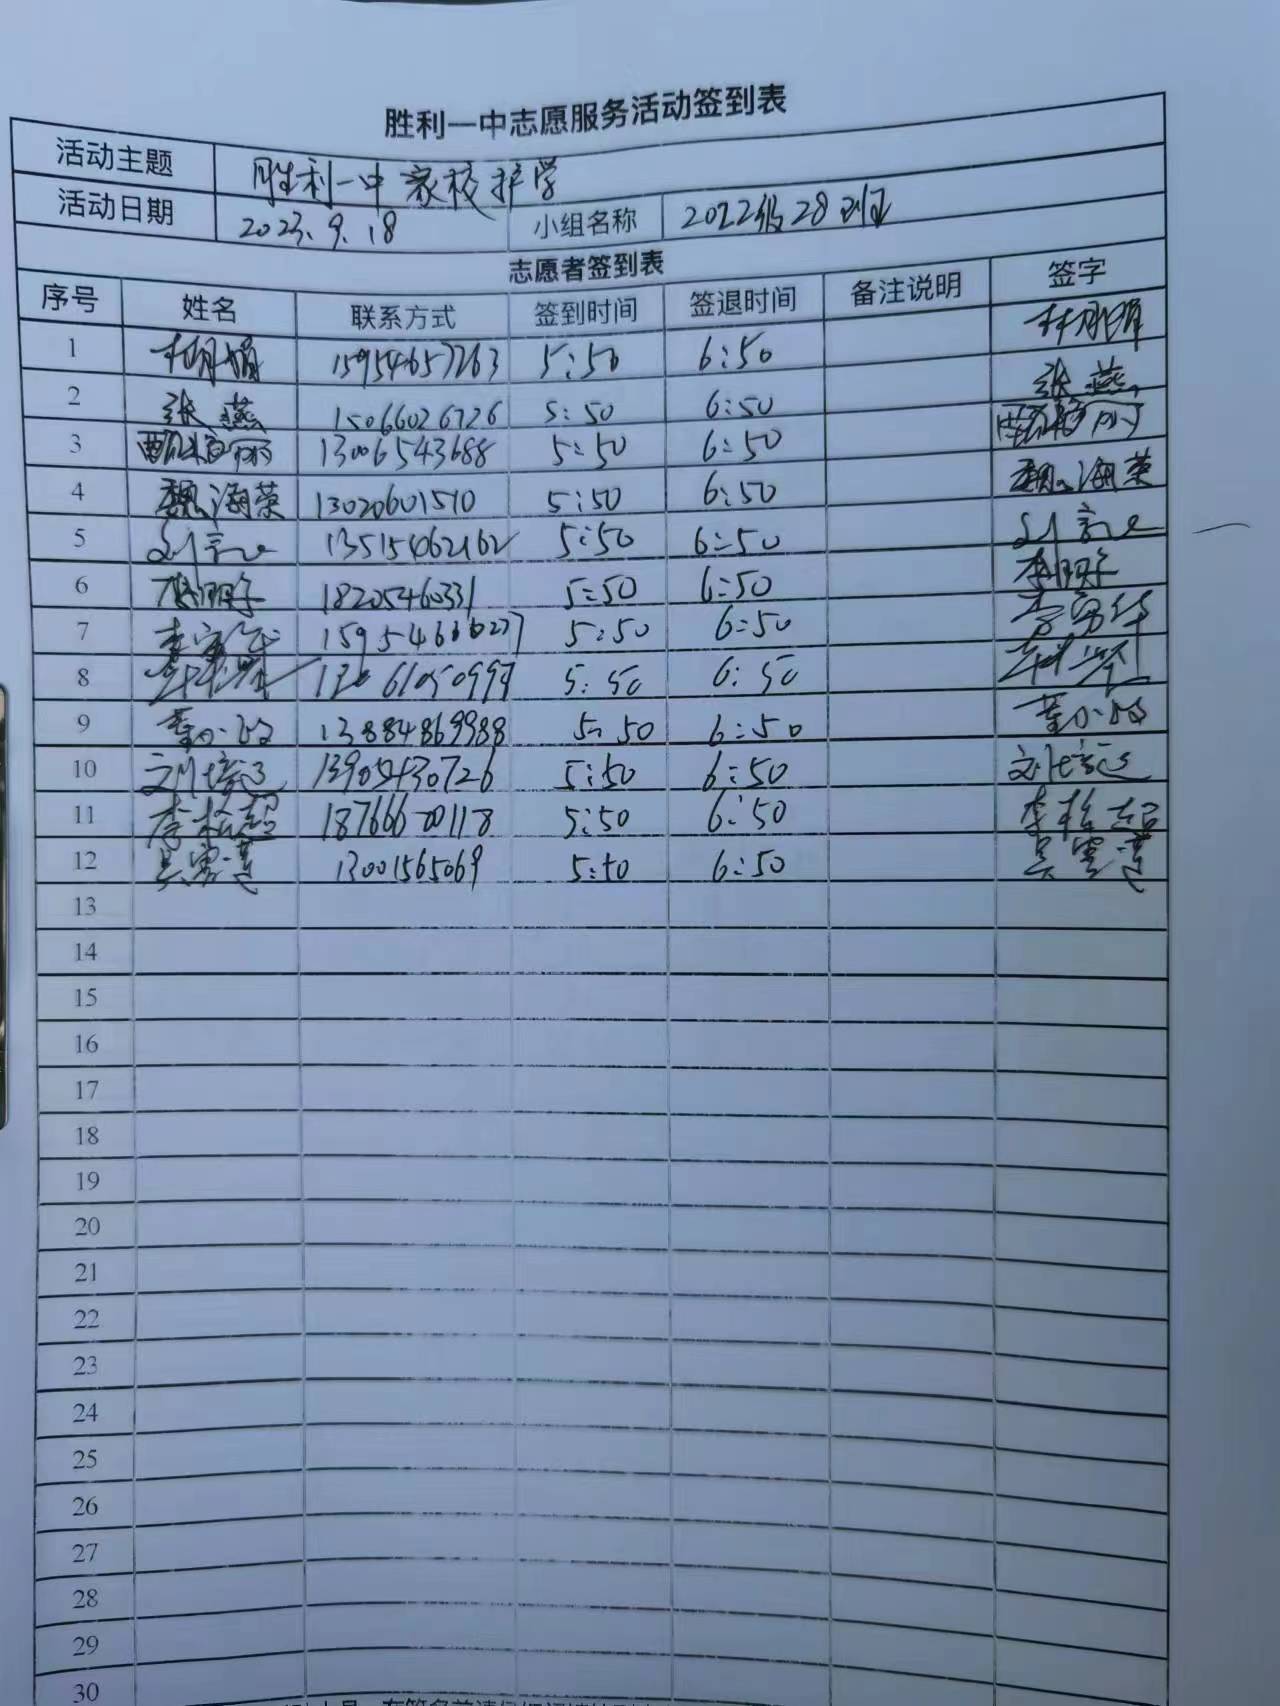 胜利一中志愿服务活动签到表
活动主题 胜利一中家校护学
活动日期 2023.9.18 小组名称 2022级28班
志愿者签到表
序号 姓名 联系方式 签到时间 签退时间 备注说明 签字
1 15954657263 5:50 6:50
2 张燕 15066026726 5:50 6:50 张燕
3 13006543688 5:50 6:50
4 魏海荣 13020601510 5:50 6:50 魏海荣
5 刘 13515462162 5:50 6:50 刘
6 18205460331 5:50 6:50
7 李 5:50 6:50 李
8 5:50 6:50
9 董小 13884869988 5:50 6:50 董小
10 刘培 13905430726 5:50 6:50 刘培
11 李 超 5:50 6:50 李 超
12 吴雪莲 13001565069 5:50 6:50 吴雪莲
13
14
15
16
17
18
19
20
21
22
23
24
25
26
27
28
29
30